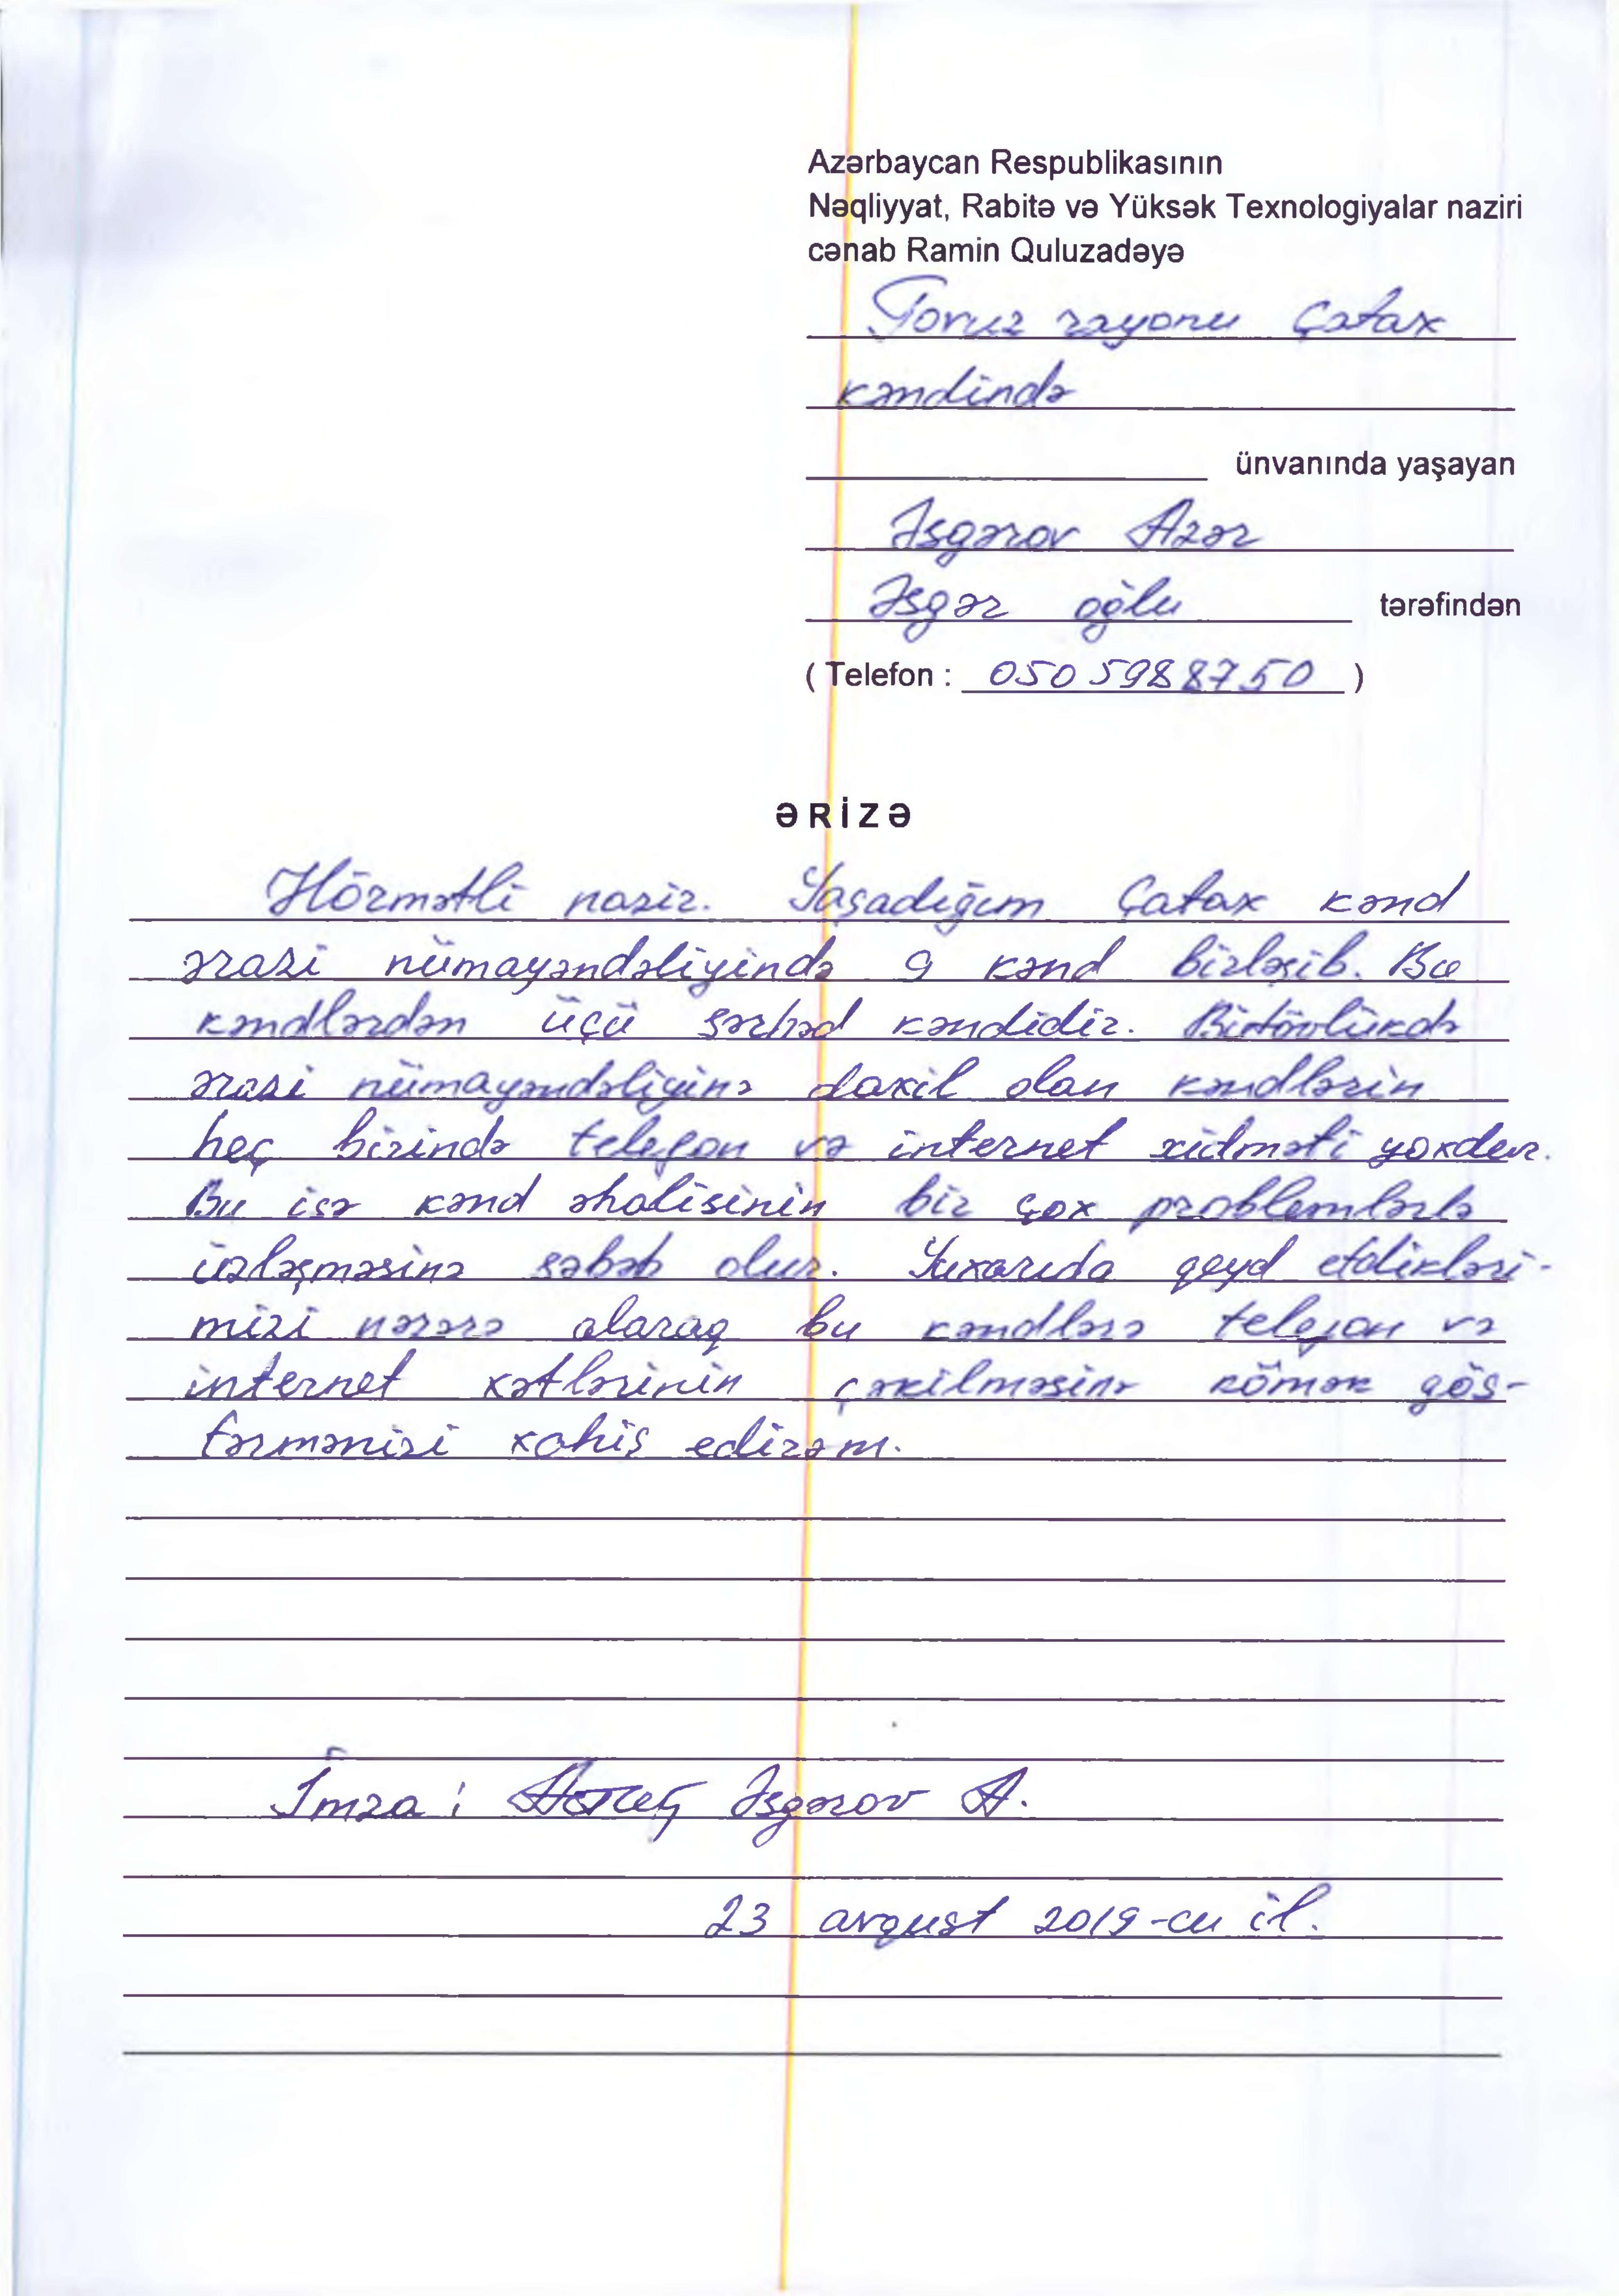 Azərbaycan Respublikasının
Nəqliyyat, Rabitə və Yüksək Texnologiyalar naziri
cənab Ramin Quluzadəyə
Tovuz rayonu Çatax
kəndində
ünvanında yaşayan
Əsgərov Azər
Əsgər oğlu tərəfindən
( Telefon : 050 598 87 50 )
ƏRİZƏ
Hörmətli nazir. Yaşadığım Çatax kənd
ərazi nümayəndəliyində 9 kənd birləşib. Bu
kəndlərdən üçü sərhəd kəndidir. Bütövlükdə
ərazi nümayəndəliyinə daxil olan kəndlərin
heç birində telefon və internet xidməti yoxdur.
Bu isə kənd əhalisinin bir çox problemlərlə
üzləşməsinə səbəb olur. Yuxarıda qeyd etdikləri-
mizi nəzərə alaraq bu kəndlərə telefon və
internet xətlərinin çəkilməsinə kömək gös-
tərmənizi xahiş edirəm.
İmza: Əsgərov A.
23 avqust 2019-cu il.